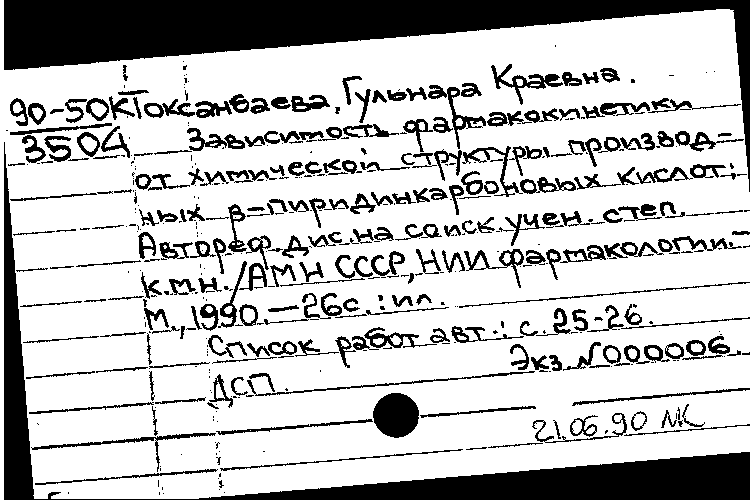 90-50К Токсанбаева, Гульнара Краевна.
3504 Зависимость фармакокинетики
от химической структуры производ-
ных β-пиридинкарбоновых кислот:
Автореф. дис. на соиск. учен. степ.
к.м.н. / АМН СССР, НИИ фармакологии. —
М., 1990. — 26с. : ил.
Список работ авт.: с. 25-26.
Экз. №000006.
ДСП.
21.06.90 МК